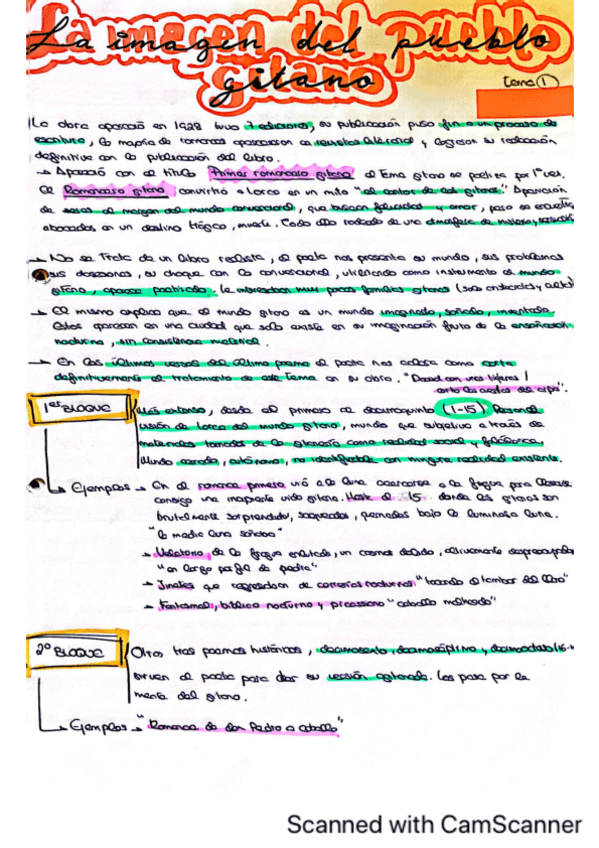 La imagen del pueblo
gitano
tema 1
La obra apareció en 1928 tuvo 7 ediciones, su publicación puso fin a un proceso de
escritura, la mayoría de romances aparecieron en revistas literarias y lograron su redacción
definitiva con la publicación del libro.
→ Apareció con el título Primer romancero gitano el tema gitano se perfila por 1ª vez.
El Romancero gitano convirtió a Lorca en un mito "el cantor de los gitanos." Aparición
de seres al margen del mundo convencional, que buscan felicidad y amor, pero se encuentran
abocados en un destino trágico, muerte. Todo ello rodeado de una atmósfera de misterio,
→ No se trata de un libro realista, el poeta nos presenta su mundo, sus problemas
sus desazones, su choque con lo convencional, utilizando como instrumento el mundo
gitano, aparece poetizado. Le interesaban muy pocas familias gitanas (solo
→ El mismo explica que el mundo gitano es un mundo imaginado, soñado, inventado.
Estos aparecen en una ciudad que solo existe en su imaginación fruto de la ensoñación
nocturna, sin consistencia material.
→ En los últimos versos del último poema el poeta nos aclara como corta
definitivamente el tratamiento de este tema en su obra. "David con unas tijeras /
cortó las cuerdas del arpa".
1er BLOQUE
Más extenso, desde el primero al decimoquinto (1-15). Responde
visión de Lorca del mundo gitano, mundo que subjetivo a través de
materiales tomados de la gitanería como realidad social y folclórica.
Mundo cerrado, autónomo, no identificable con ninguna realidad existente.
Ejemplos → En el romance primero vió a la luna acercarse a la fragua para llevarse
consigo una pequeña vida gitana. Hasta el 15 donde los gitanos son
brutalmente sorprendidos, saqueados, penados bajo la luminosa luna.
"la media luna soñaba"
→ de la fragua enlutada, un cosmos dolido,
"un largo perfil de piedra"
→ Jinetes que regresaban de correrías nocturnas "tocando el tambor del llano"
→ Fantasmal, bíblico nocturno y "caballo malherido"
2º BLOQUE
Otros tres poemas históricos, decimosexto, decimoséptimo y decimoctavo (16-
sirven al poeta para dar su versión agitanada. Los pasa por la
mente del gitano.
Ejemplos → "Romance de don Pedro a caballo"
Scanned with CamScanner